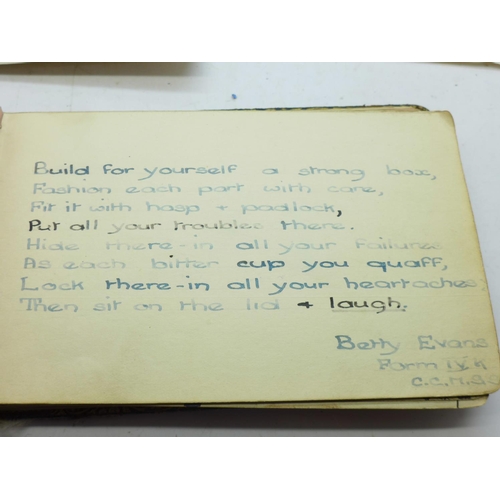 Build for yourself a strong box,
Fashion each part with care,
Fit it with hasp + padlock,
Put all your troubles there.
Hide there-in all your failures
As each bitter cup you quaff,
Lock there-in all your heartaches,
Then sit on the lid + laugh.
Betty Evans
Form IV.K
C.C.H.S.